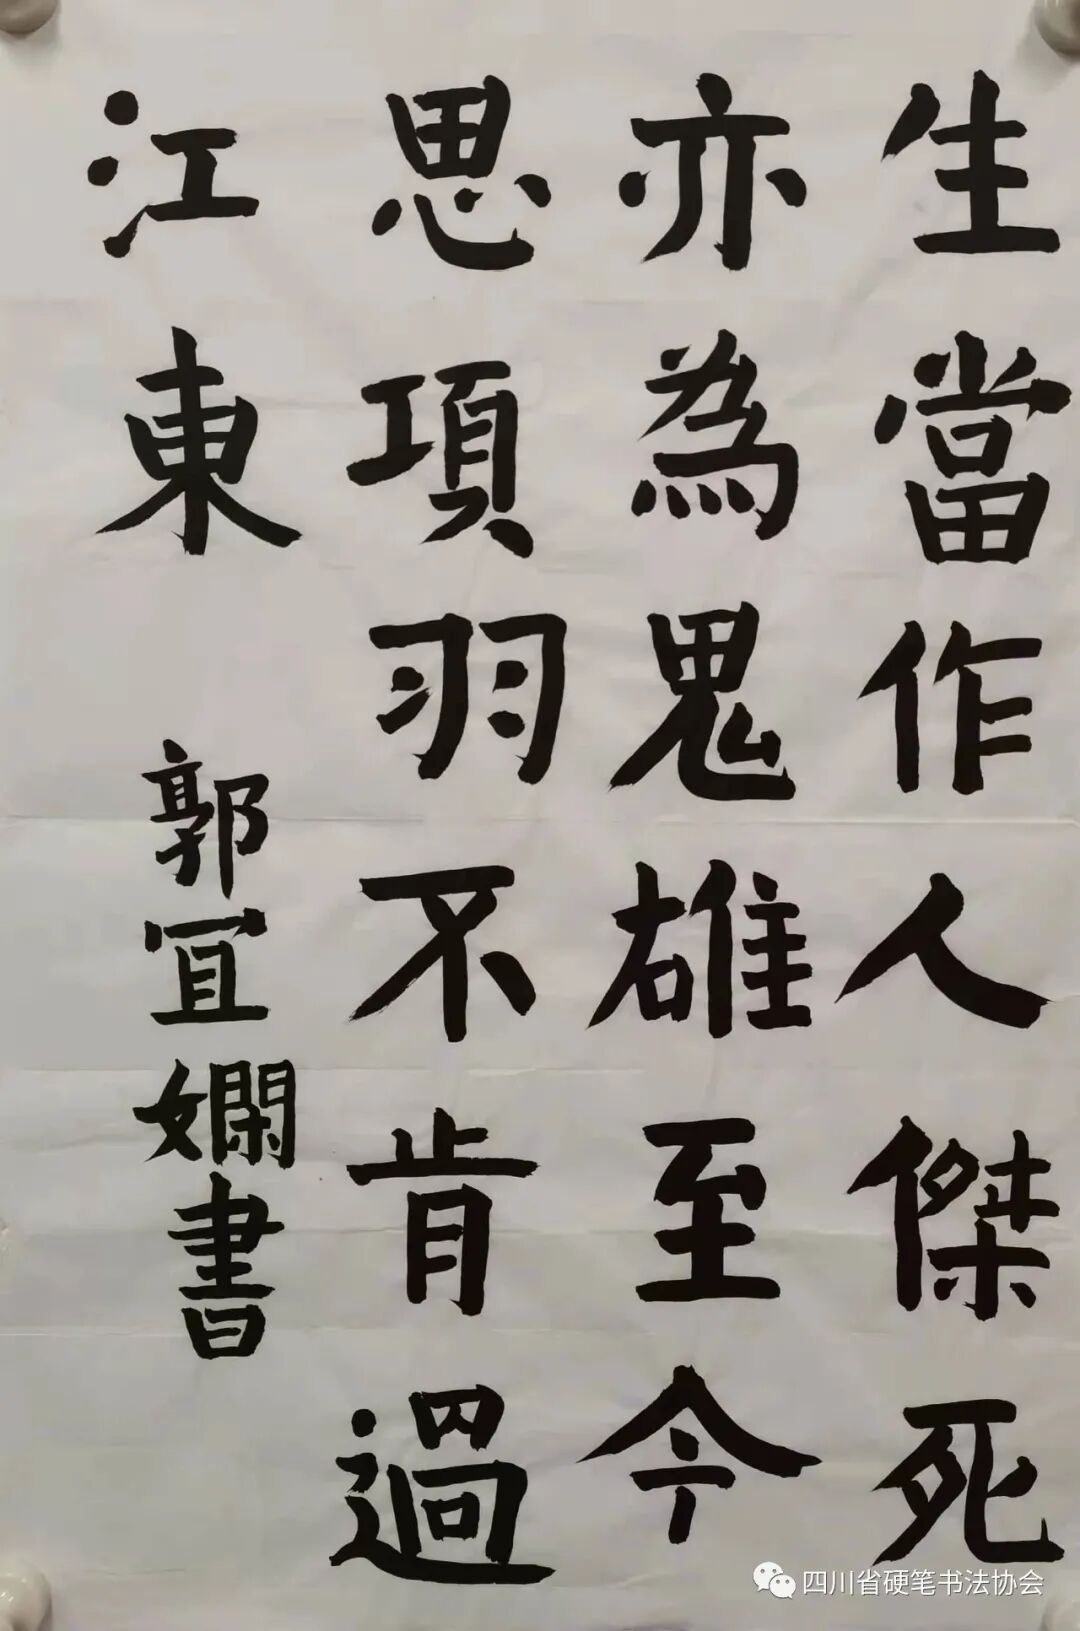 生當作人傑死
亦為鬼雄至今
思項羽不肯過
江東
郭宜嫻書
四川省硬笔书法协会